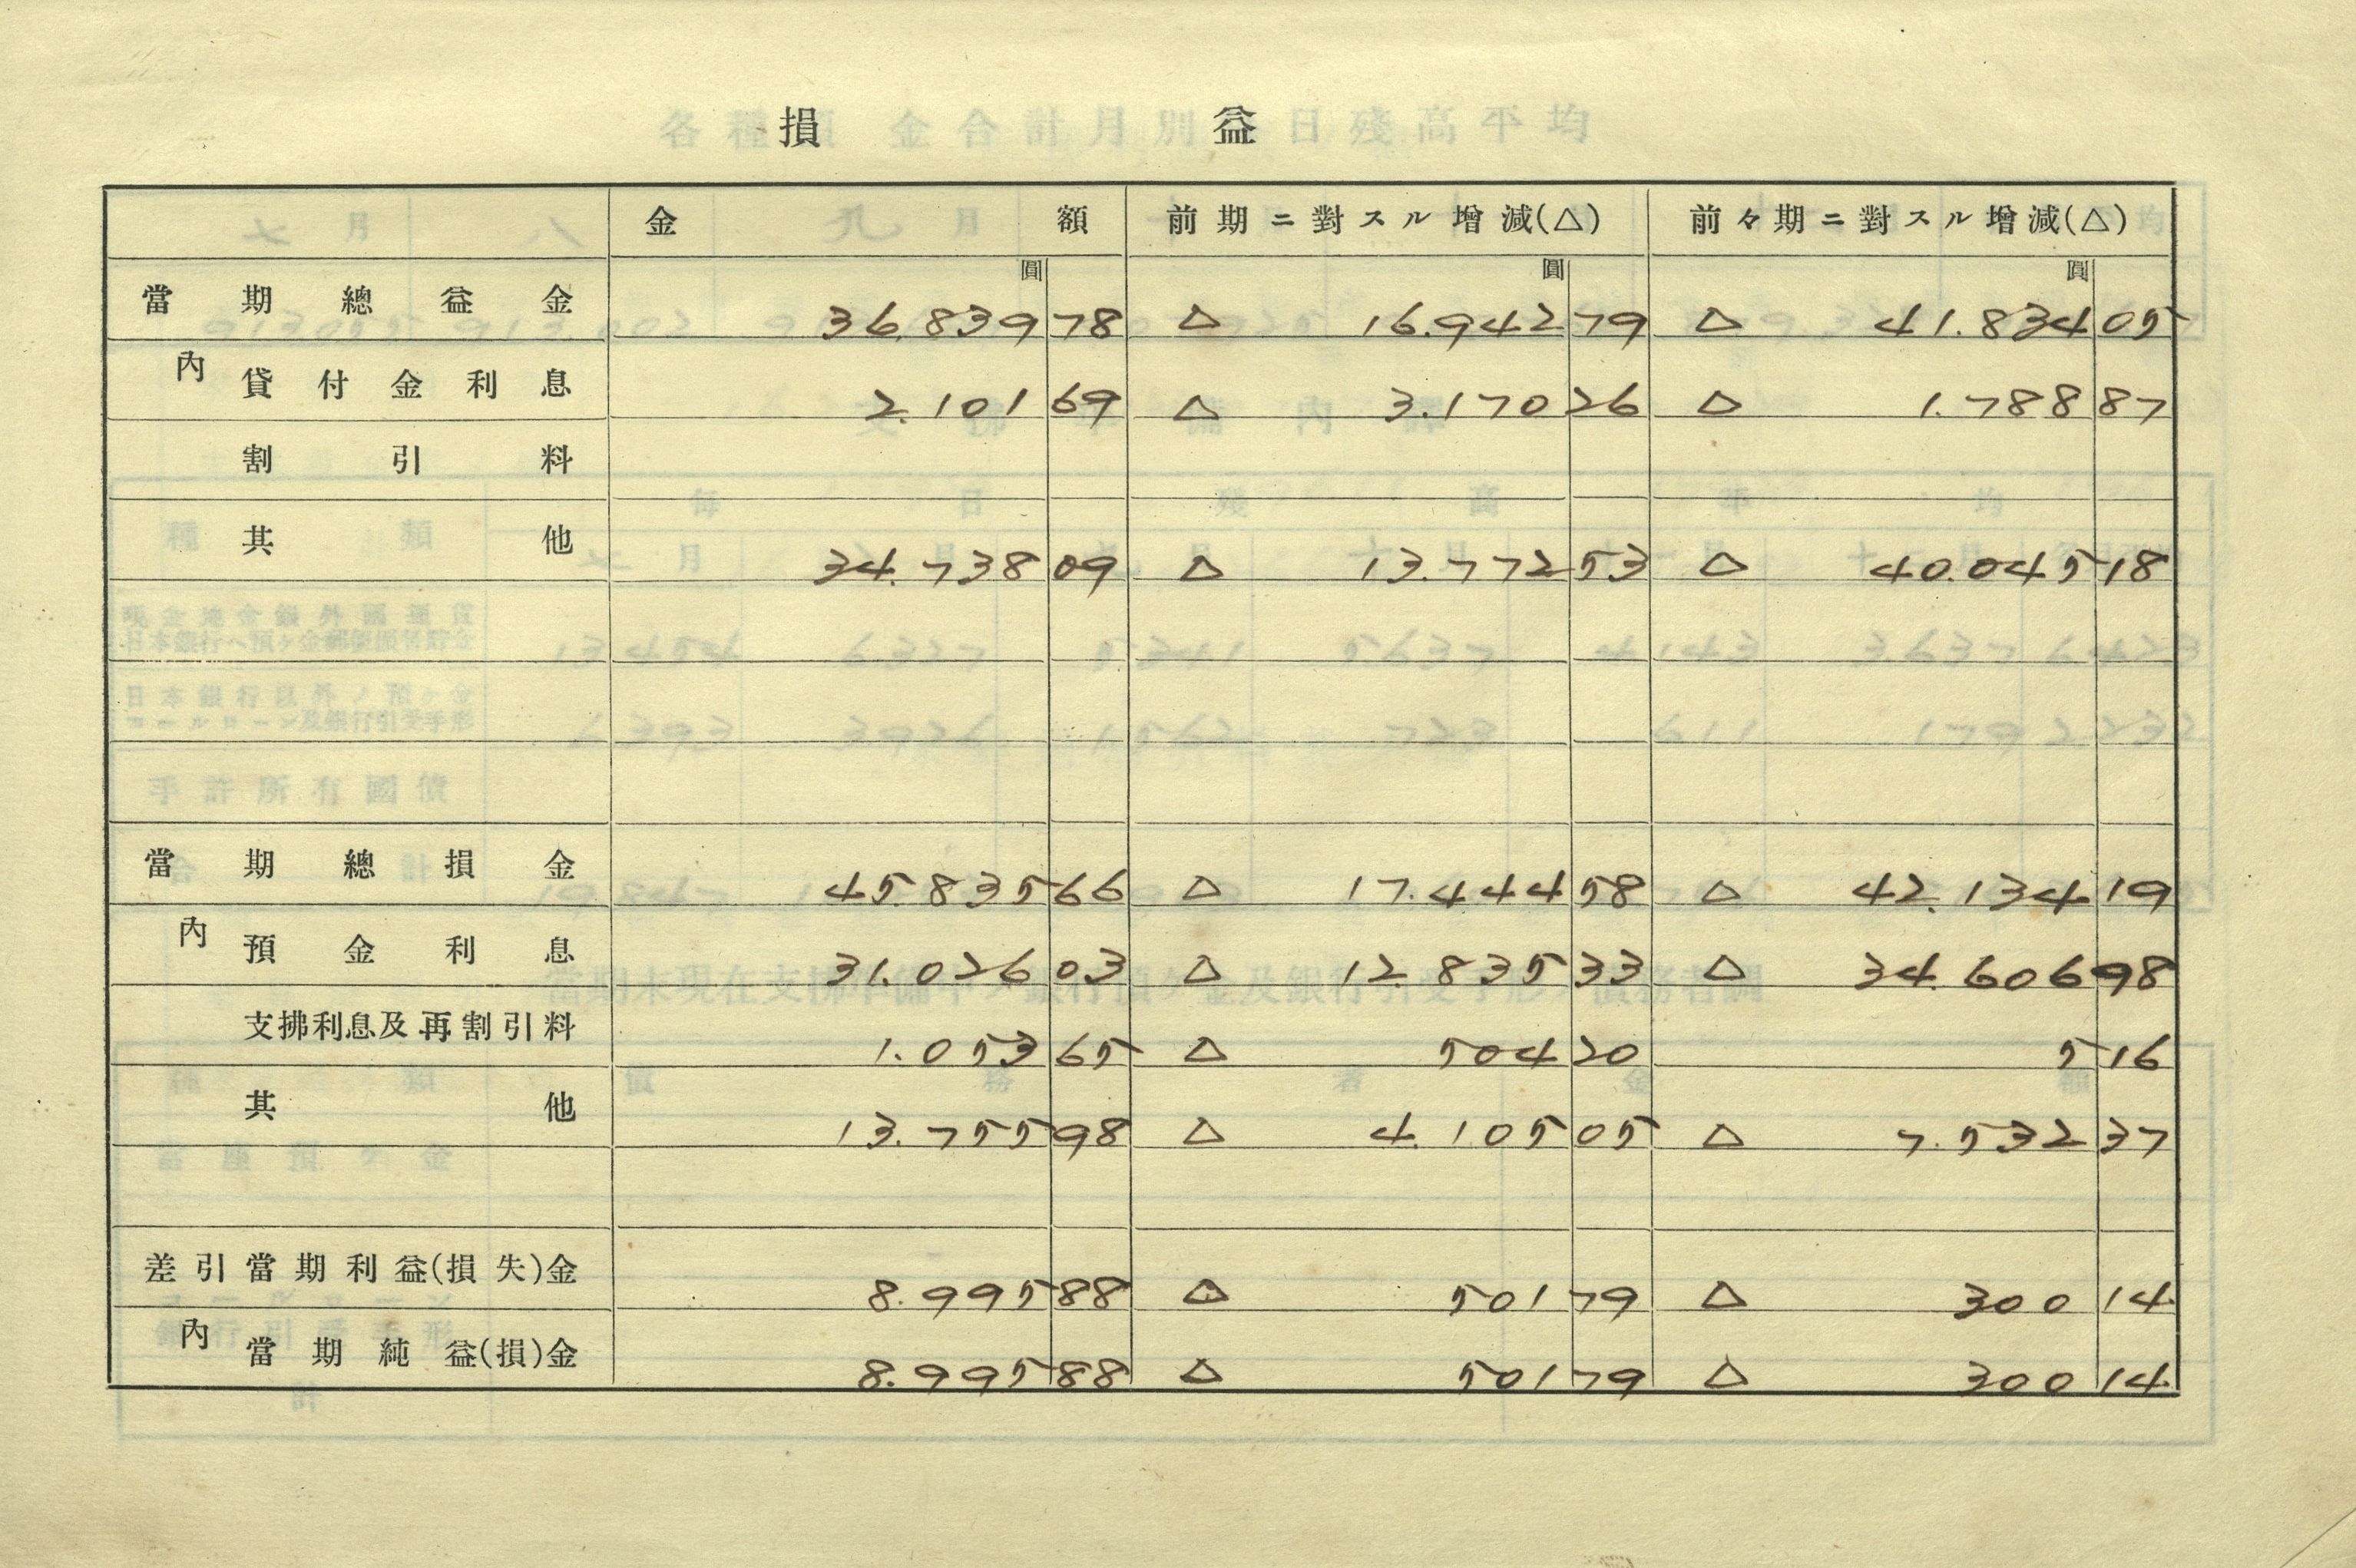 損益
金額 前期ニ對スル增減(△) 前々期ニ對スル增減(△)
圓 圓 圓
當期總益金 36.839 78 △ 16.942 79 △ 41.834 05
內 貸付金利息 2.101 69 △ 3.170 26 △ 1.788 87
割引料
其他 34.738 09 △ 13.772 53 △ 40.045 18
當期總損金 45.835 66 △ 17.444 58 △ 42.134 19
內 預金利息 31.026 03 △ 12.835 33 △ 34.606 98
支拂利息及再割引料 1.053 65 △ 504 20 5 16
其他 13.755 98 △ 4.105 05 △ 7.532 37
差引當期利益(損失)金 8.995 88 △ 501 79 △ 300 14
內 當期純益(損)金 8.995 88 △ 501 79 △ 300 14